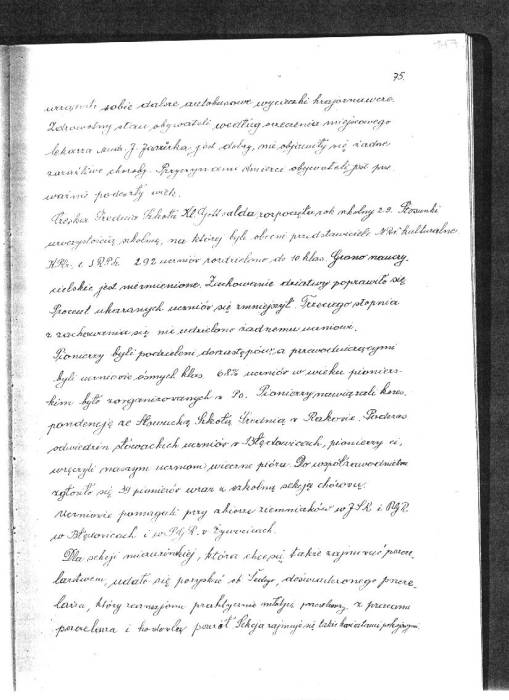 75.
sobie dalsze autobusowe wycieczki krajoznawcze.
Zdrowotny stan obywateli według orzeczenia miejscowego
lekarza Mudr. J. jest dobry, nie objawiły się żadne
zaraźliwe choroby. Przyczynami śmierci obywateli jest
podeszły wiek.
Czeska Średnia Szkoła Kl. Gottwalda rozpoczęła rok szkolny 2.9.
uroczystością szkolną, na której byli obecni przedstawiciele kulturalne
i S.R.P.Sz. 292 uczniów rozdzielono do 10 klas. Grono nauczy-
cielskie jest niezmienione. Zachowanie dziatwy poprawiło się
Procent ukaranych uczniów się zmniejszył. Trzeciego stopnia
z zachowania się nie udzielono żadnemu uczniowi.
Pionierzy byli podzieleni do zastępów, a przewodniczącymi
byli uczniowie ósmych klas. 68% uczniów w wieku pionier-
skim było zorganizowanych w Po. Pionierzy nawiązali kores-
pondencję ze Słowacką Szkołą Średnią w Rakovie. Podczas
odwiedzin słowackich uczniów w Błędowicach, pionierzy ci,
wręczyli naszym uczniom wieczne pióra. Do współzawodnictwa
zgłosiło się 39 pionierów wraz z szkolną sekcją
Uczniowie pomagali przy zbiorze ziemniaków w J.Z.R. i P.G.R.
w Błędowicach i w P.G.R. w Żywocicach.
Dla sekcji miczurińskiej, która chce się także zajmować pszcze-
larstwem, udało się pozyskać ob. doświadczonego pszcze-
larza, który zaznajomi praktycznie młodzież z pracami
pszczelarza i hodowlą pszczół. Sekcja zajmuje się także